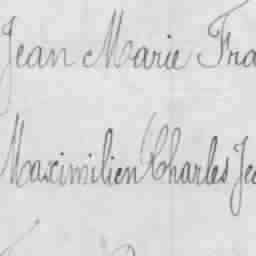 Jean Marie Fra
Maximilien Charles Je